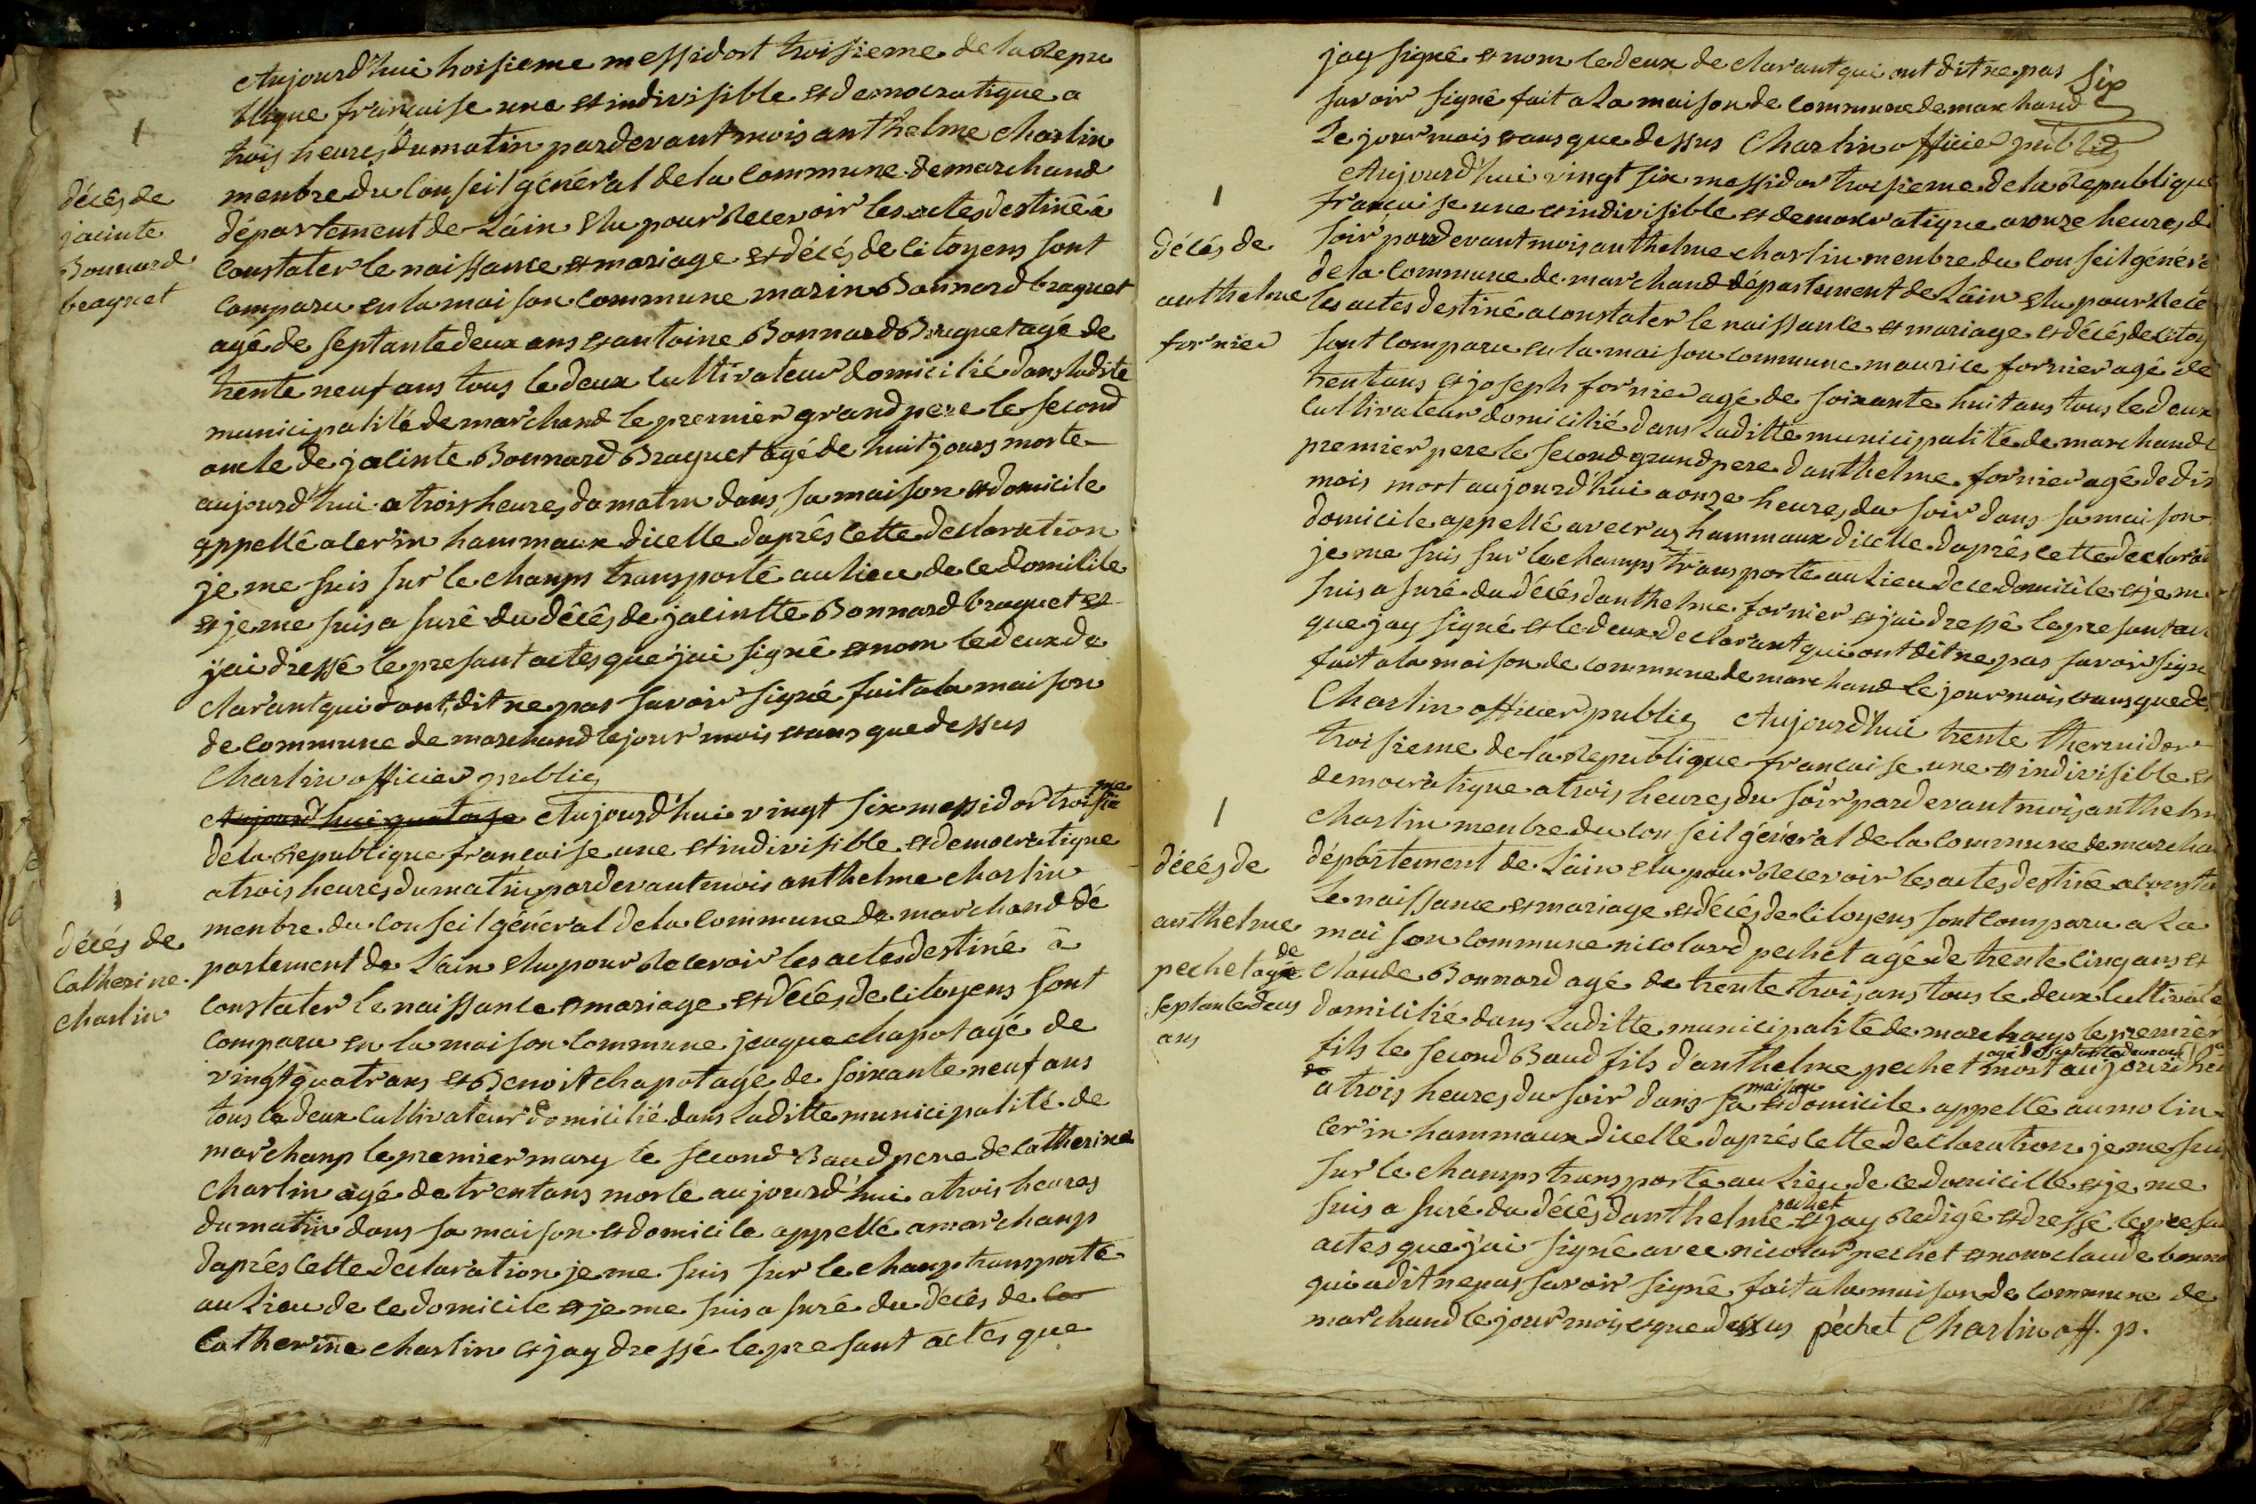 Aujourd'hui troisieme messidort troisieme de la Repu
blique francaise une et indivisible et democratique a
trois heures du matin pardevant mois anthelme charlin
menbre du Conseil général de la Commune de marchand
département de Lain elu pour Recevoir les actes destiné à
Constater le naissance et mariage et décés de Citoyens sont
Comparu en la maison Commune marin Bonnard braquet
agé de septante deux ans et antoine Bonnard Braquet agé de
trente neuf ans tous le deux Cultivateur domicilié dans ladite
municipalité de marchand le premier grand pere le second
oncle de jacinte Bonnard Braquet agé de huit jours morte
aujourd'hui a trois heures du matin dans sa maison et domicile
appellé a cerin hammaux dicelle daprés cette declaration
je me suis sur le champs transporté au lieu de ce domicile
et je me suis a suré du décés de jacintte Bonnard braquet et
j'ai dressé le presant actes que j'ai signé et nom le deux de
clarant qui dont dit ne pas savoir signé fait a la maison
de Commune de marchand le jour mois et ans que dessus
Charlin officier public
Aujourd'hui quatorze Aujourd'hui vingt six messidor troisie me
de la Republique francaise une et indivisible et democratique
a trois heures du matin pardevant mois anthelme charlin
menbre du Conseil général de la Commune de marchand dé
partement de Lain elu pour Recevoir les actes destiné à
Constater le naissance et mariage et décés de Citoyens sont
Comparu en la maison Commune jaque chapot agé de
vingt quatr ans et Benoit chapot agé de soixante neuf ans
tous le deux Cultivateur domicilié dans Laditte municipalité de
marchanp le premier mary le second Baud pere de Catherine
Charlin agé de trent ans morte aujourd'hui a trois heures
du matin dans sa maison et domicile appellé a marchanp
daprés cette declaration je me suis sur le champ transporté
au Lieu de ce domicile et je me suis a suré du décés de la
Catherine charlin et jay dressé le presant actes que
1
décés de
jacinte
Bonnard
braquet
1
décés de
Catherine
Charlin
jay signé et nom le deux de clarant qui ont dit ne pas
Six
savoir signé fait a La maison de Commune de marchand
Le jour mois et ans que dessus Charlin officier public
Aujourd'hui vingt six messidor troisieme de la Republique
francaise une et indivisible et democratique a onze heures d
soir pardevant mois anthelme charlin menbre du Conseil génér
de la Commune de marchand département de Lain elu pour Rece
les actes destiné a constater le naissance et mariage et décés de Citoy
sont Comparu en la maison Commune maurice fornier agé de
trent ans et joseph fornier agé de soixante huit ans tous le deux
Cultivateur domicilié dans Laditte municipalité de marchand l
premier pere le second grand pere danthelme fornier agé de dix
mois mort aujourd'hui a onze heures du soir dans sa maison
domicile appellé hammaux dicelle daprés cette declarat
je me suis sur le champs transporté au Lieu de ce domicile et je m
suis a suré du décés danthelme fornier et j'ai dressé le presant act
que jay signé et le deux declarant qui ont dit ne pas savoir sign
fait a la maison de commune de marchand Le jour mois et ans que des
Charlin officier public Aujourd'hui trente thermidor
troisieme de la Republique francaise une et indivisible et
democratique a trois heures du soir pardevant mois anthelm
Charlin menbre du Conseil général de la Commune de marcha
département de Lain elu pour Recevoir les actes destiné a consta
Le naissance et mariage et décés de Citoyens sont Comparu a La
maison Commune nicolard pechet agé de trente cinq ans et
Claude Bonnard agé de trente trois ans tous le deux Cultivate
domicilié dans Laditte municipalité de marchanp le premier
fils le second Baud fils d'anthelme pechet agé de septante deux ans mort aujourd'hui
a trois heures du soir dans sa maison et domicile appellé au molin
cerin hammaux dicelle daprés cette declaration je me suis
sur le champs transporté au Lieu de ce domicille et je me
suis a suré du décés danthelme pechet et jay Redigé et dressé le presan
actes que j'ai signé avec nicolar pechet et nom claude bonna
qui a dit ne pas savoir signé fait a la maison de Commune de
marchand le jour mois et que dessus péchet Charlin off. p.
1
décés de
anthelme
fornier
1
décés de
anthelme
pechet agé de
septante deux
ans